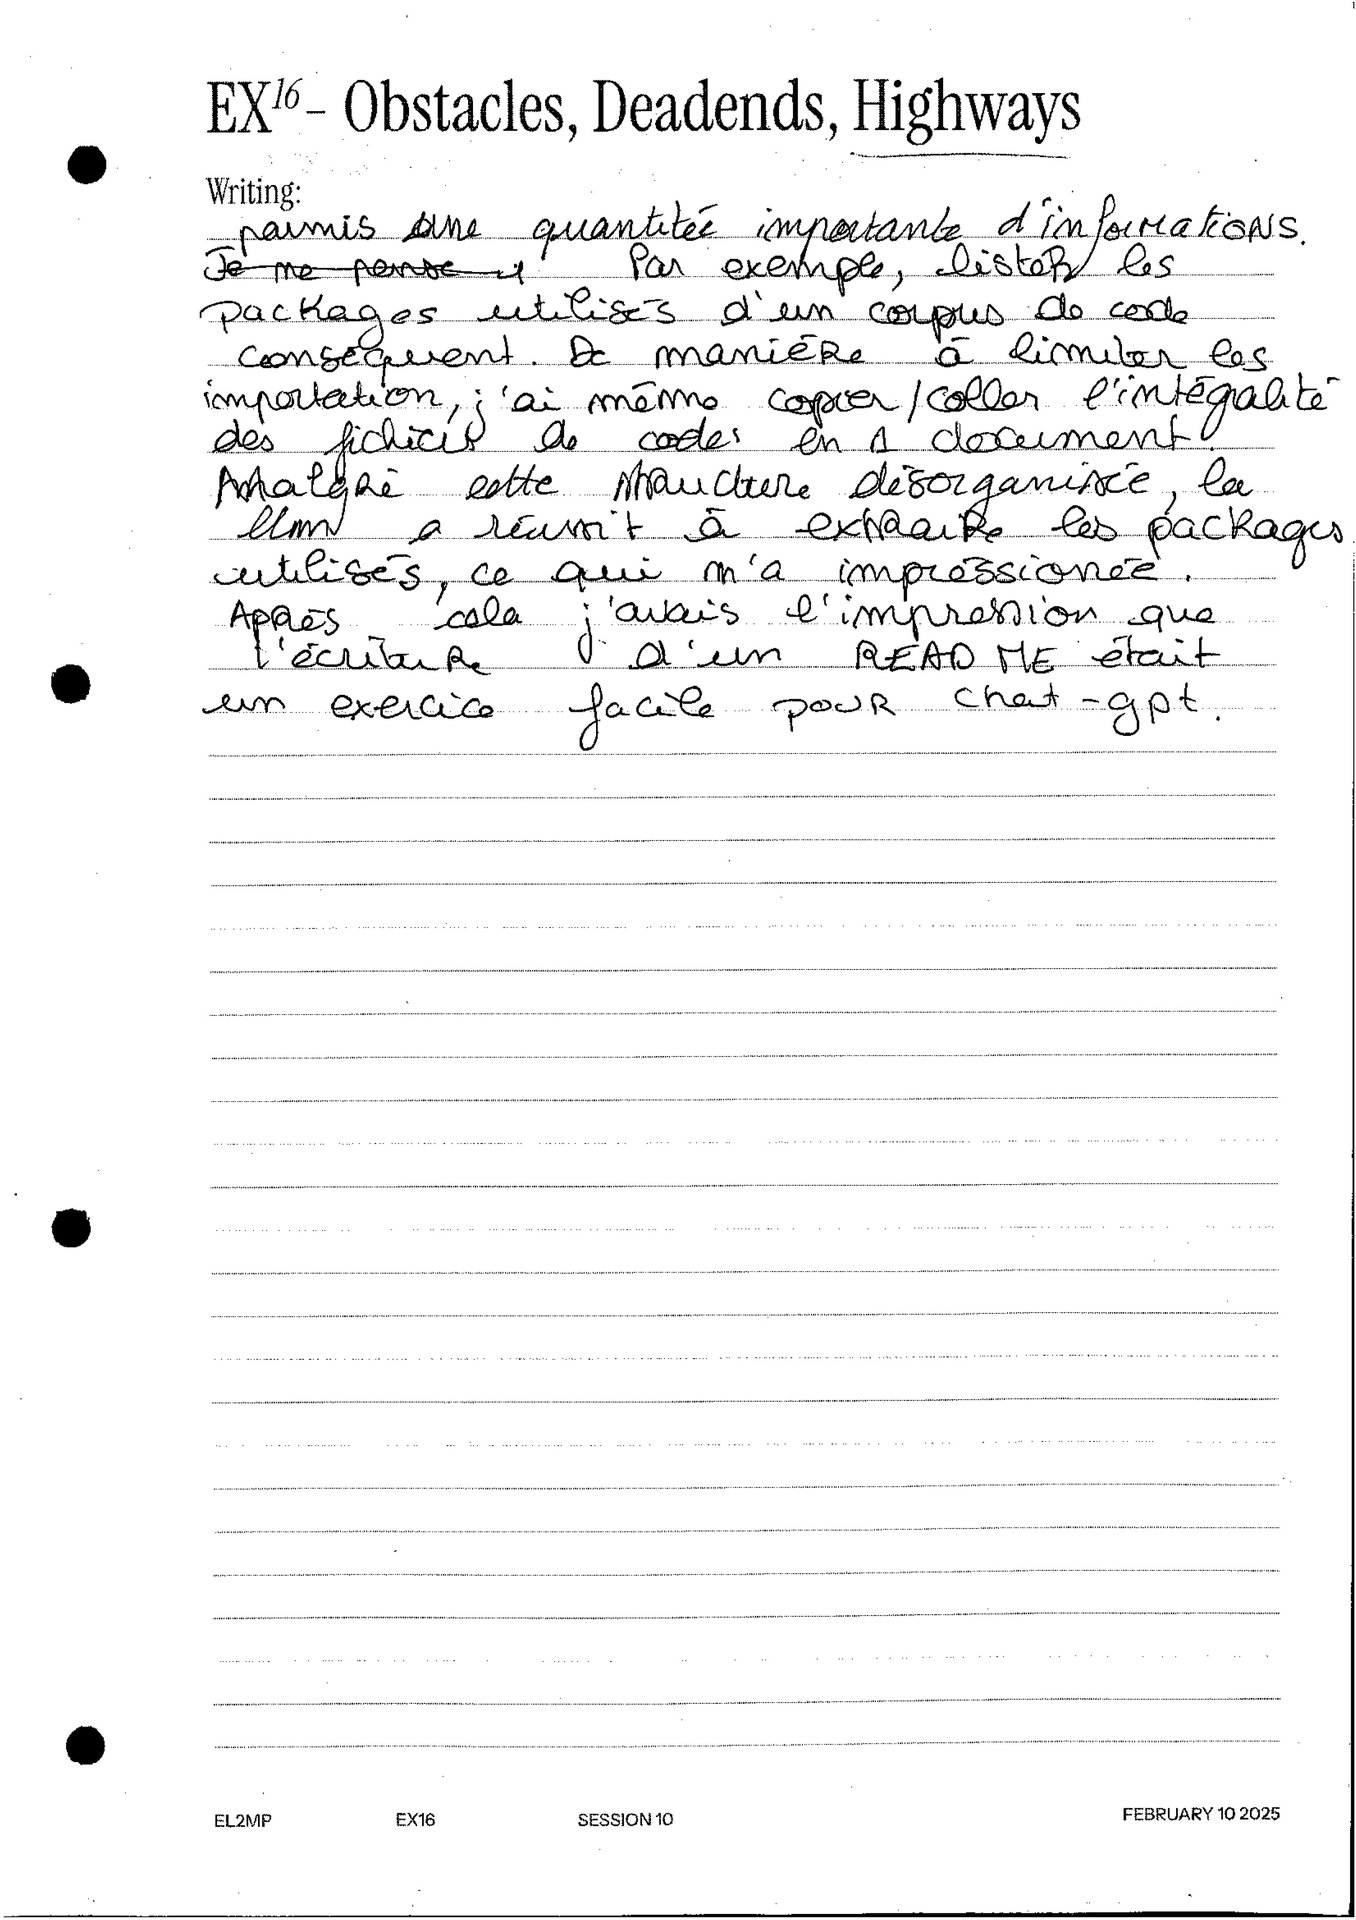 EX16 – Obstacles, Deadends, Highways
Writing:
parmis une quantitée importante d'informations.
Je me pense Par exemple, lister les
packages utilisés d'un corpus de code
conséquent. De manière à limiter les
importation, j'ai même copier/coller l'intégalité
des fichiers de codes en 1 document.
Malgré cette structure désorganisée, la
llm a réussit à extraire les packages
utilisés, ce qui m'a impréssionée.
Après cela j'avais l'impression que
l'écriture d'un READ ME était
un exercice facile pour chat-gpt.
EL2MP EX16 SESSION 10 FEBRUARY 10 2025